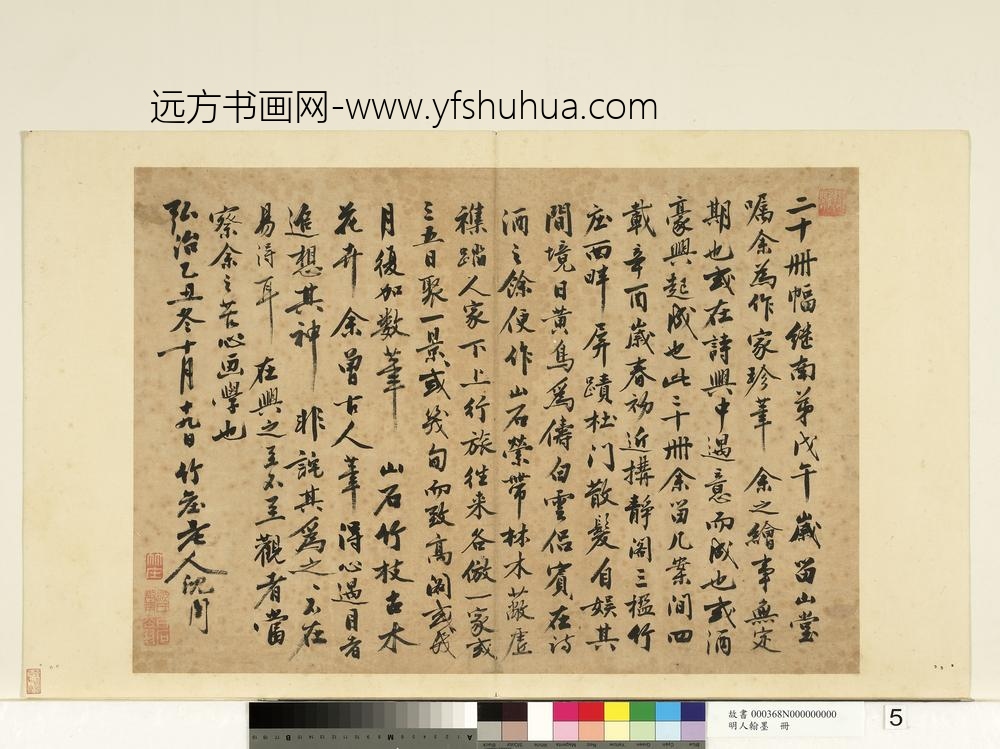 远方书画网-www.yfshuhua.com
二十冊幅继南弟戊午歲留山堂
囑余為作家珍筆 余之繪事無定
期也或在詩興中遇意而成也或酒
豪興起成也此二十冊余留几案间四
載辛酉歲春初近搆靜阁三楹竹
庄面畔屏蹟杜门散髮自娱其
間境日黄鳥為儔白雲侣賓在诗
酒之餘便作山石縈帶林木蔽虛
襍踏人家下上行旅往来各倣一家或
三五日聚一景或幾旬而致高阁或戎
月後加数筆 山石竹枝古木
花卉 余曽古人筆得心遇目者
追想其神 非説其為之之不在
易得耳 在興之至不至觀者當
察余之苦心画學也
弘治乙丑冬十月十九日竹庄老人沈周
故書 000368N000000000
明人翰墨 冊
5